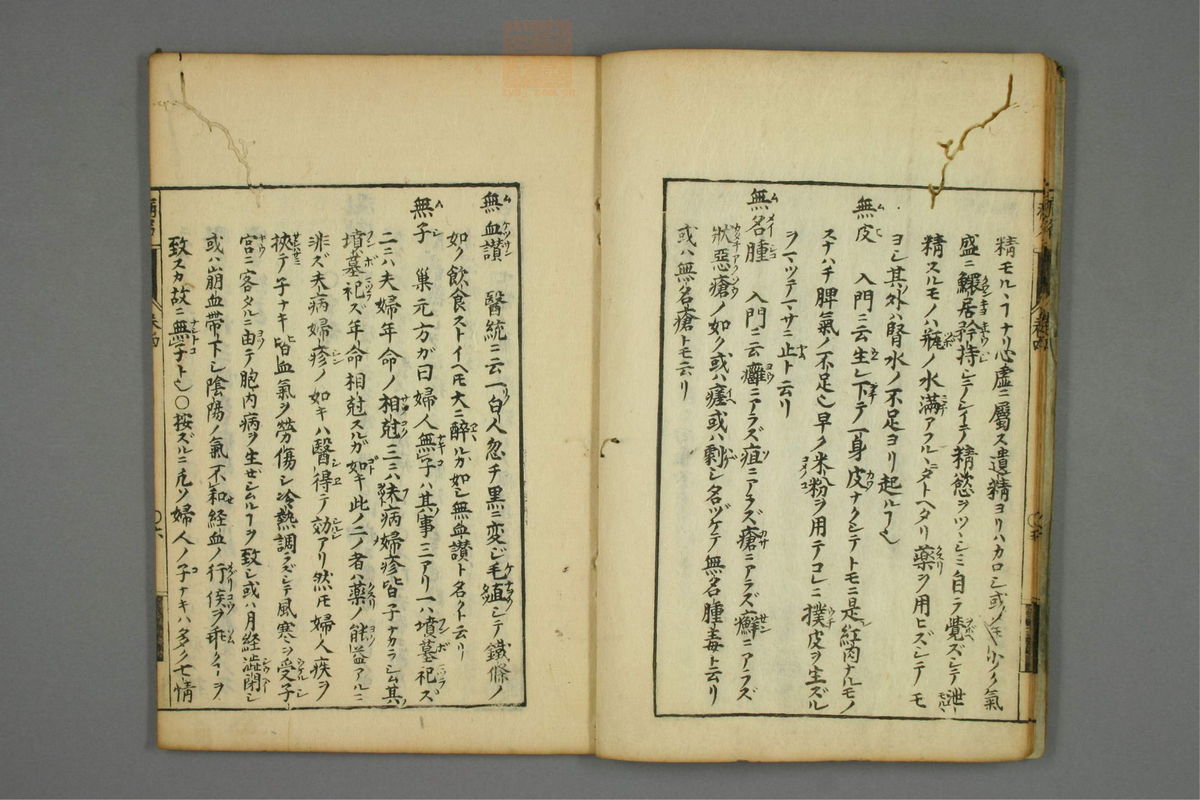 精モルヽヿナリ心虚ニ屬ス遺精ヨリハカロシ或ノ年少ク氣
盛ニ鰥居矜持シテ精慾ヲツヽシミ自ラ覺ズシテ泄
精スルモノハ瓶ノ水満アフルヽニタトヘタリ藥ヲ用ヒズシテモ
ヨシ其外ハ腎水ノ不足ヨリ起ルヿ也
無皮 入門ニ云生レ下テ一身皮ナクシテトモニ是紅肉ナルモノ
スナハチ脾氣ノ不足也早ク米粉ヲ用テコレニ撲皮ヲ生ズル
ヲマツテマサニ止ト云リ
無名腫 入門ニ云癰ニアラズ疽ニアラズ瘡ニアラズ癬ニアラズ
狀惡瘡ノ如ク或ハ瘥或ハ劇シ名ヅケテ無名腫毒ト云リ
或ハ無名瘡トモ云リ
無血讃 醫統ニ云一白人忽チ黒ニ変ジ毛殖シテ鐵條ノ
如ク飲食ストイヘモ大ニ醉ルガ如シ無血讃ト名クト云リ
無子 巢元方が曰婦人無子ハ其事三アリ一ハ墳墓祀ズ
二ニハ夫婦年命ノ相尅三ニハ夫病婦疹皆子ナカラシム其
墳墓祀ズ年命相尅スルガ如キ此ノ二ノ者ハ藥ノ能益アルニ
非ズ夫病婦疹ノ如キハ醫得テ効アリ然モ婦人疾ヲ
挾テ子ナキ皆血氣ヲ勞傷シ冷熱調ラズシテ風寒ヲ受子
宮ニ客タルニ由テ胞内病ヲ生ゼシムルヿヲ致シ或ハ月経澁閉シ
或ハ崩血帶下シ陰陽ノ氣不和経血ノ行候ヲ乖クヿヲ
致スカ故ニ無子ト也〇按ズルニ凡ソ婦人ノ子ナキハ多ク七情